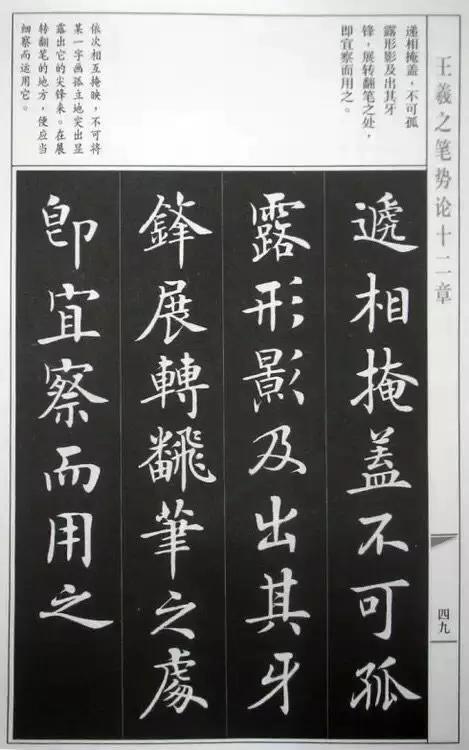 王羲之笔势论十二章
四九
递相掩盖，不可孤
露形影及出其牙
锋，展转翻笔之处，
即宜察而用之。
依次相互掩映，不可将
某一字画孤立地突出显
露出它的尖锋来。在展
转翻笔的地方，便应当
细察而运用它。
遞相掩蓋不可孤
露形影及出其牙
鋒展轉飜筆之處
卽宜察而用之